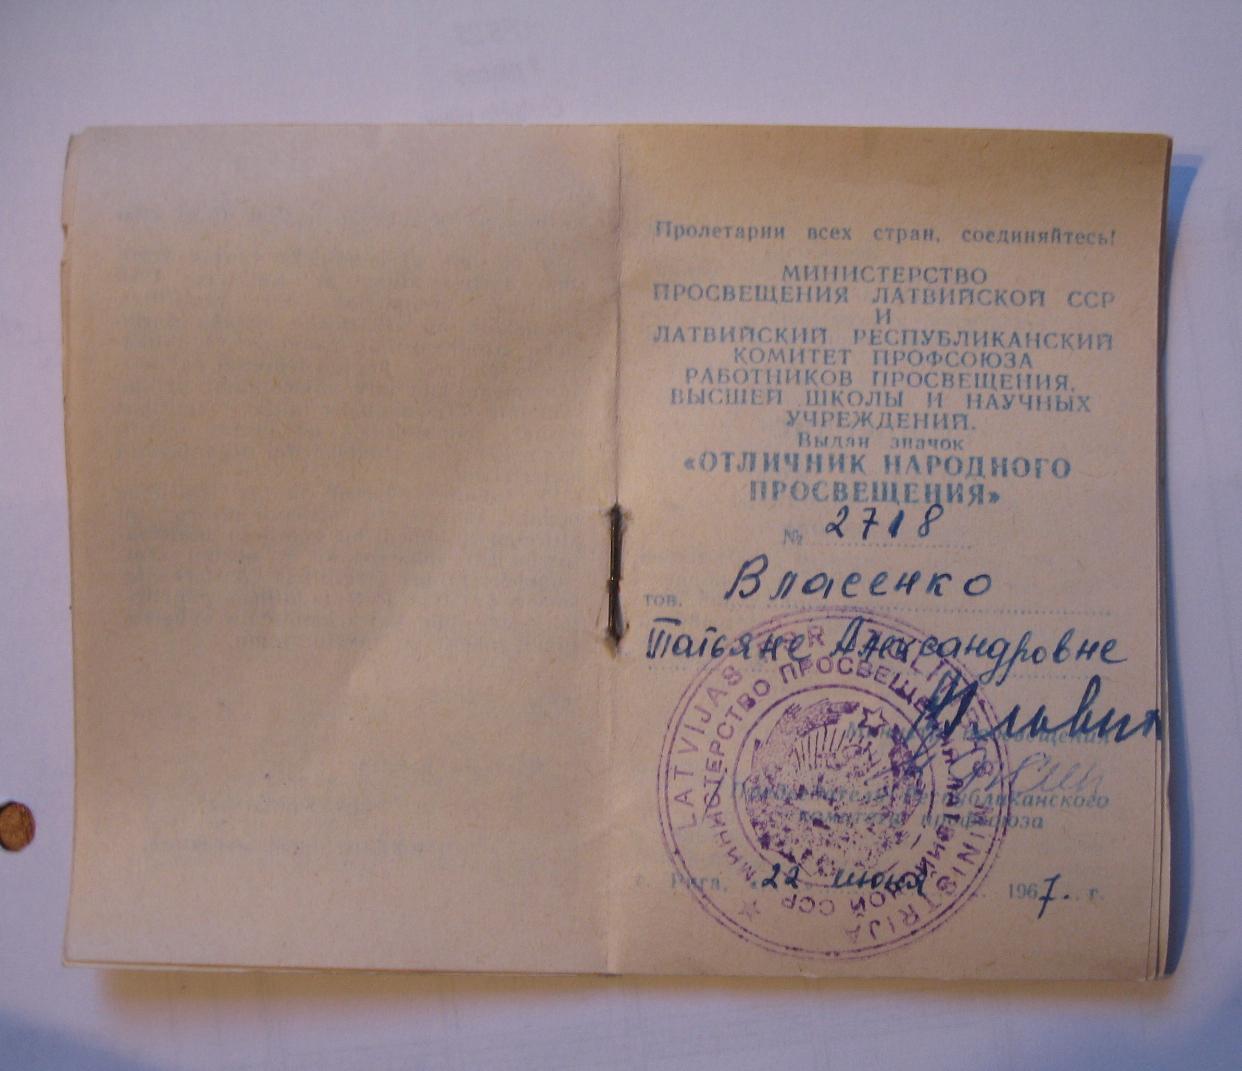 Пролетарии всех стран, соединяйтесь!
МИНИСТЕРСТВО
ПРОСВЕЩЕНИЯ ЛАТВИЙСКОЙ ССР
И
ЛАТВИЙСКИЙ РЕСПУБЛИКАНСКИЙ
КОМИТЕТ ПРОФСОЮЗА
РАБОТНИКОВ ПРОСВЕЩЕНИЯ,
ВЫСШЕЙ ШКОЛЫ И НАУЧНЫХ
УЧРЕЖДЕНИЙ.
Выдан значок
«ОТЛИЧНИК НАРОДНОГО
ПРОСВЕЩЕНИЯ»
№ 2718
тов. Власенко
Татьяне Александровне
просвещения
Председатель Республиканского
комитета профсоюза
г. Рига, «22 июня 1967. г.
LATVIJAS PSR MINISTRIJA
МИНИСТЕРСТВО ПРОСВЕЩЕНИЯ ЛАТВИЙСКОЙ ССР